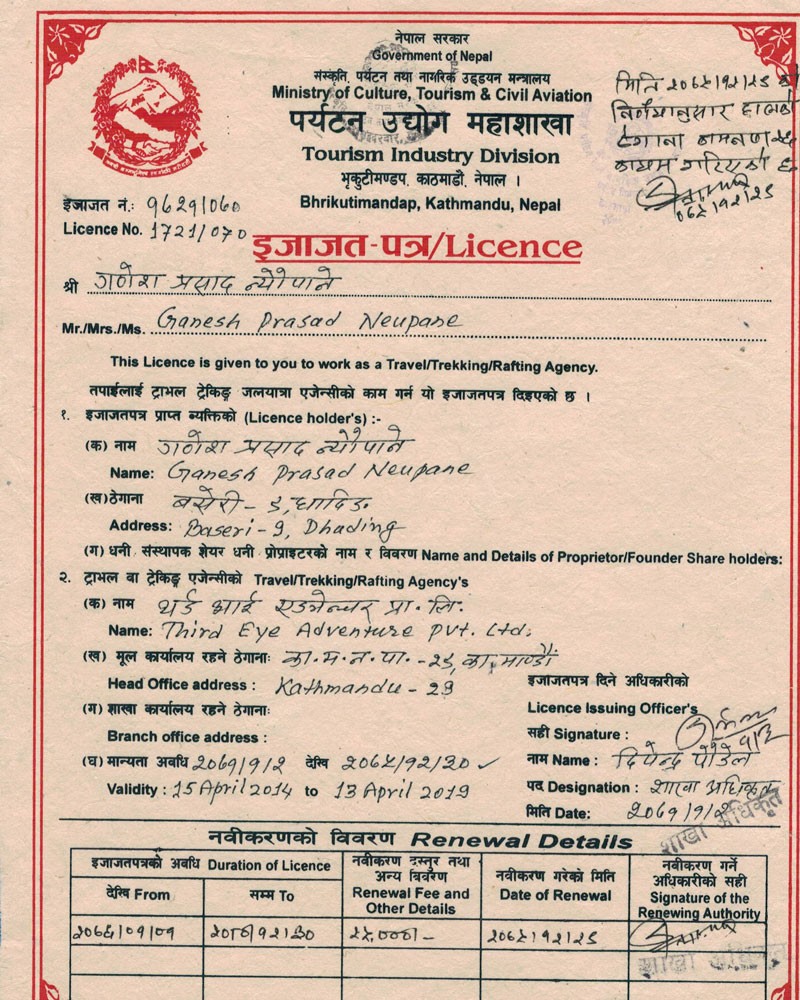 नेपाल सरकार
Government of Nepal
संस्कृति, पर्यटन तथा नागरिक उड्डयन मन्त्रालय
Ministry of Culture, Tourism & Civil Aviation
पर्यटन उद्योग महाशाखा
Tourism Industry Division
भृकुटीमण्डप, काठमाडौं, नेपाल ।
Bhrikutimandap, Kathmandu, Nepal
इजाजत नं.:
Licence No. 1721/070
इजाजत-पत्र/Licence
श्री गणेश प्रसाद न्यौपाने
Mr./Mrs./Ms. Ganesh Prasad Neupane
This Licence is given to you to work as a Travel/Trekking/Rafting Agency.
तपाईलाई ट्राभल ट्रेकिङ्ग जलयात्रा एजेन्सीको काम गर्न यो इजाजतपत्र दिइएको छ ।
१. इजाजतपत्र प्राप्त ब्यक्तिको (Licence holder's) :-
(क) नाम गणेश प्रसाद न्यौपाने
Name: Ganesh Prasad Neupane
(ख) ठेगाना बसेरी-९, धादिङ
Address: Baseri-9, Dhading
(ग) धनी संस्थापक शेयर धनी प्रोप्राइटरको नाम र विवरण Name and Details of Proprietor/Founder Share holders:
२. ट्राभल वा ट्रेकिङ्ग एजेन्सीको Travel/Trekking/Rafting Agency's
(क) नाम थर्ड आई एडभेन्चर प्रा. लि.
Name: Third Eye Adventure Pvt. Ltd.
(ख) मूल कार्यालय रहने ठेगानाः का.म.न.पा.-२९,
Head Office address : Kathmandu - 29
(ग) शाखा कार्यालय रहने ठेगानाः
Branch office address :
(घ) मान्यता अवधि २०७१/१/२ देखि २०७५/१२/३०
Validity : 15 April 2014 to 13 April 2019
इजाजतपत्र दिने अधिकारीको
Licence Issuing Officer's
सही Signature :
नाम Name : दिपेन्द्र पौडेल
पद Designation : शाखा अधिकृत
मिति Date: २०७१/१/२
शाखा अधिकृत
नवीकरणको विवरण Renewal Details
इजाजतपत्रको अवधि Duration of Licence
देखि From
सम्म To
नवीकरण दस्तुर तथा अन्य विवरण
Renewal Fee and Other Details
नवीकरण गरेको मिति
Date of Renewal
नवीकरण गर्ने अधिकारीको सही
Signature of the Renewing Authority
२०७६/०१/०१
शाखा अधिकृत